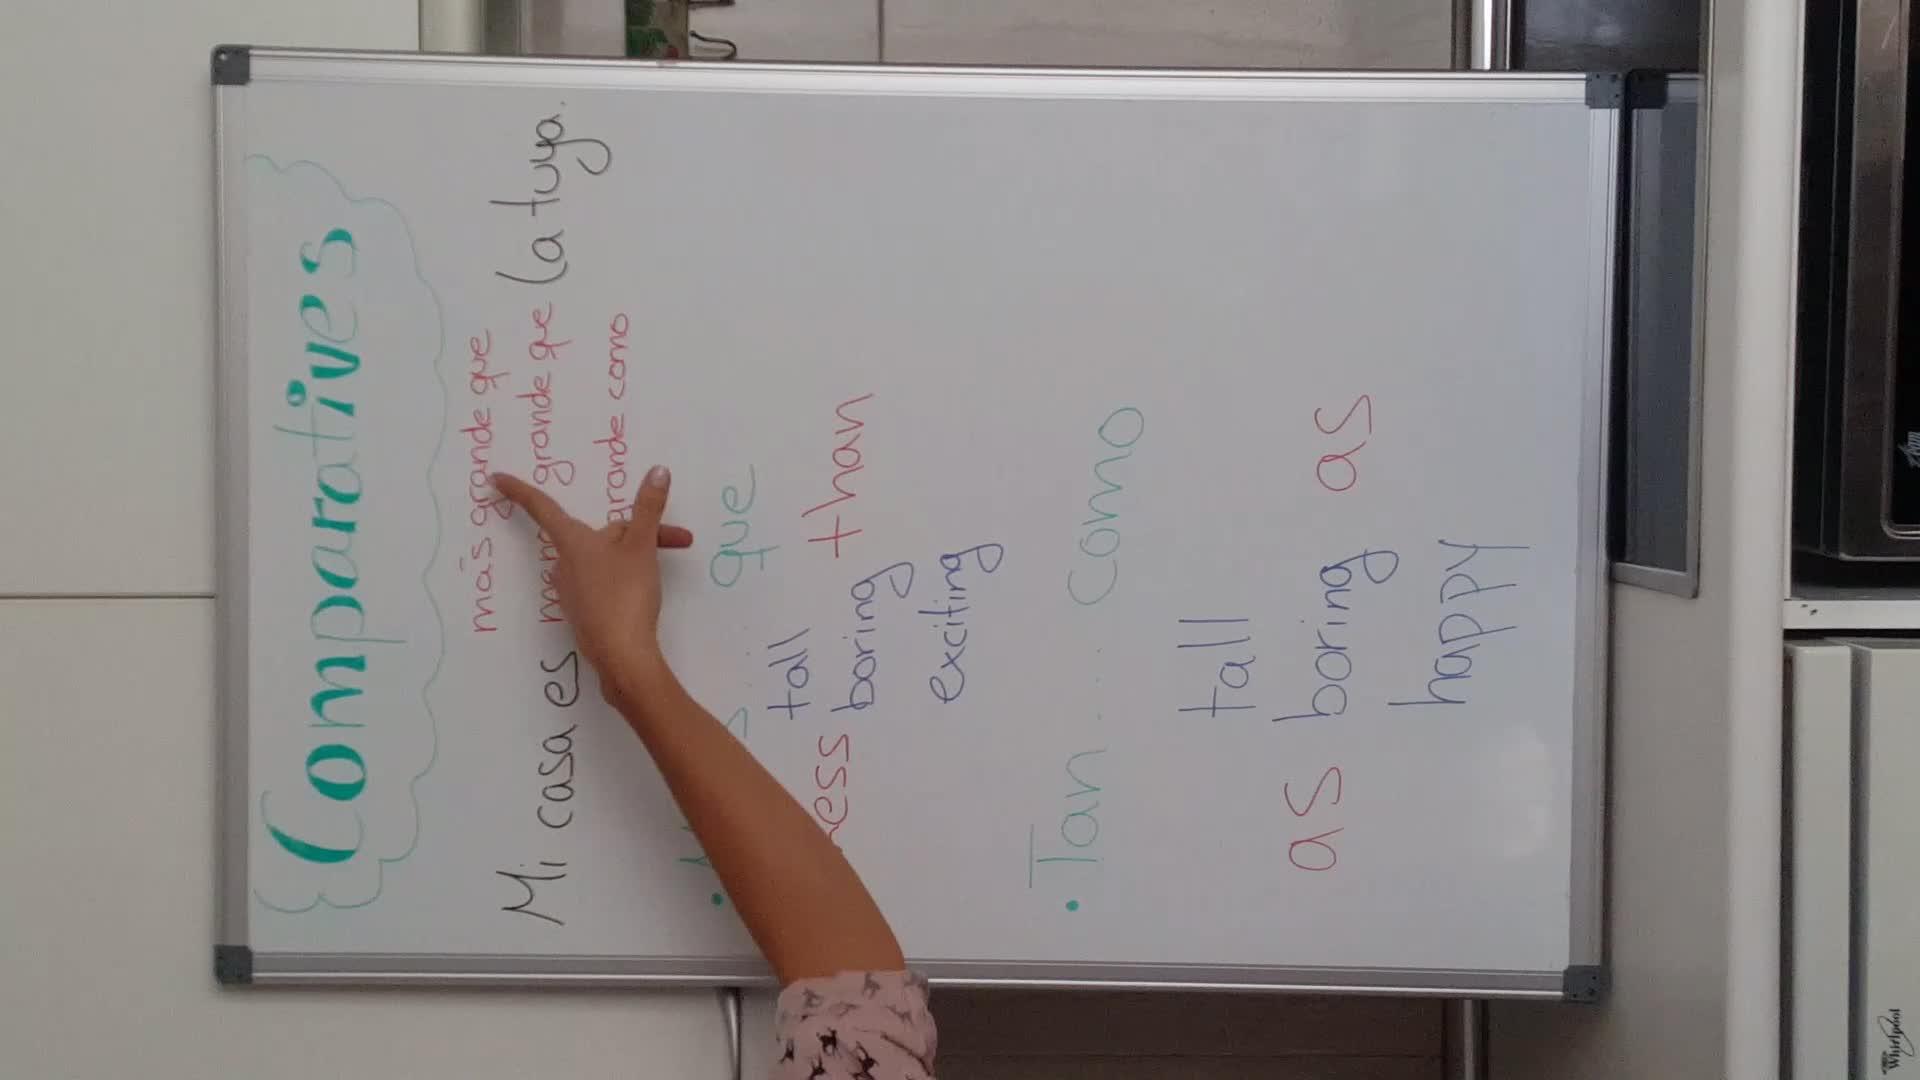 Comparatives
más grande que
Mi casa es grande que la tuya.
grande como
que
tall
boring than
exciting
• Tan .... como
tall
as boring as
happy
Whirlpool